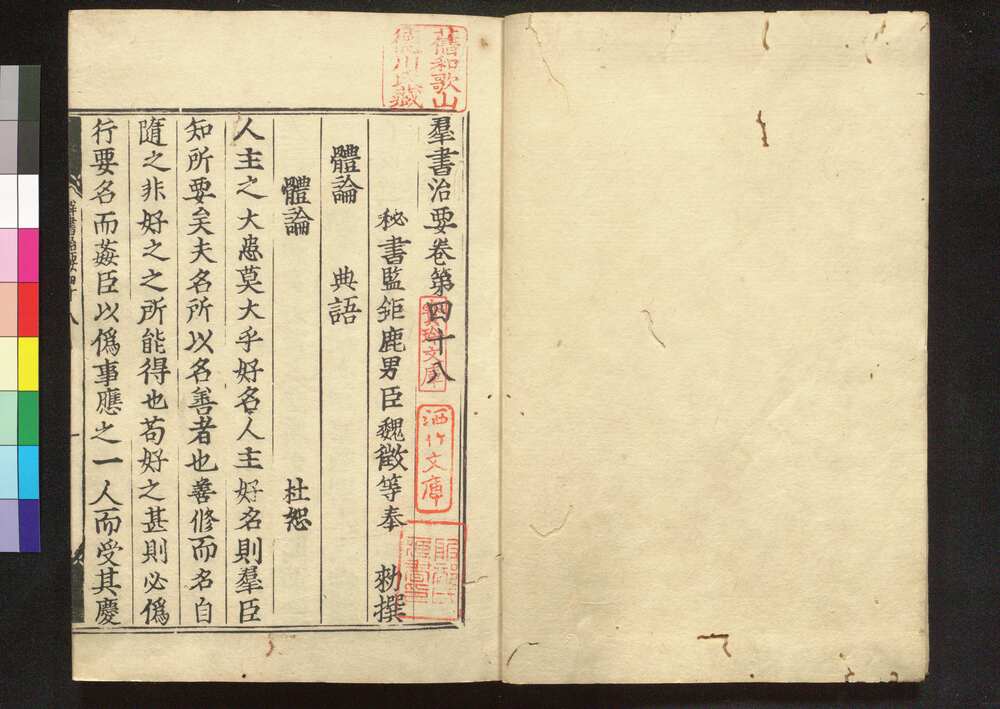 羣書治要卷第四十八
秘書監鉅鹿男臣魏徵等奉　勑撰
體論　典語
體論　杜恕
人主之大患莫大乎好名人主好名則羣臣
知所要矣夫名所以名善者也善修而名自
隨之非好之之所能得也苟好之甚則必僞
行要名而姦臣以僞事應之一人而受其慶
群書治要四十八
一
舊和歌山
德川氏藏
洒竹文庫